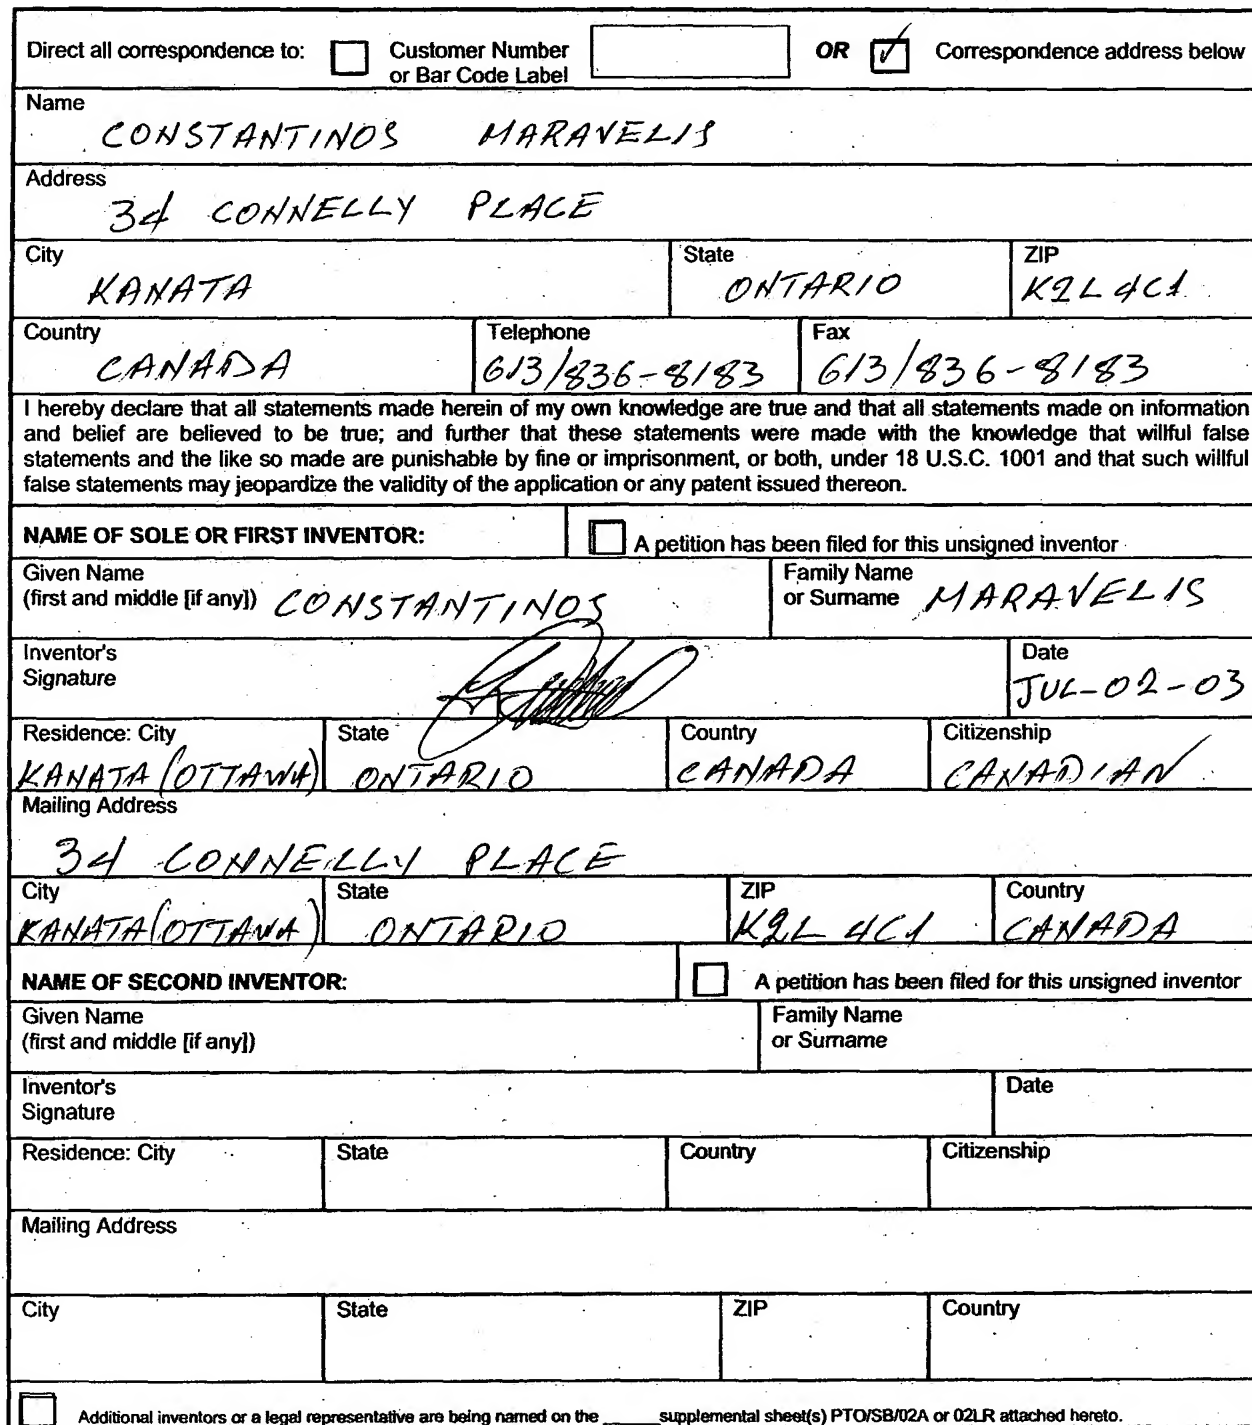 Direct all correspondence to: Customer Number or Bar Code Label OR ✓ Correspondence address below
Name
CONSTANTINOS MARAVELIS
Address
34 CONNELLY PLACE
City State ZIP
KANATA ONTARIO K2L 4C1
Country Telephone Fax
CANADA 613/836-8183 613/836-8183
I hereby declare that all statements made herein of my own knowledge are true and that all statements made on information
and belief are believed to be true; and further that these statements were made with the knowledge that willful false
statements and the like so made are punishable by fine or imprisonment, or both, under 18 U.S.C. 1001 and that such willful
false statements may jeopardize the validity of the application or any patent issued thereon.
NAME OF SOLE OR FIRST INVENTOR: A petition has been filed for this unsigned inventor
Given Name
(first and middle [if any]) CONSTANTINOS
Family Name
or Surname MARAVELIS
Inventor's
Signature
Date
JUL-02-03
Residence: City State Country Citizenship
KANATA (OTTAWA) ONTARIO CANADA CANADIAN
Mailing Address
34 CONNELLY PLACE
City State ZIP Country
KANATA (OTTAWA) ONTARIO K2L 4C1 CANADA
NAME OF SECOND INVENTOR: A petition has been filed for this unsigned inventor
Given Name
(first and middle [if any])
Family Name
or Surname
Inventor's
Signature
Date
Residence: City State Country Citizenship
Mailing Address
City State ZIP Country
Additional inventors or a legal representative are being named on the _____ supplemental sheet(s) PTO/SB/02A or 02LR attached hereto.